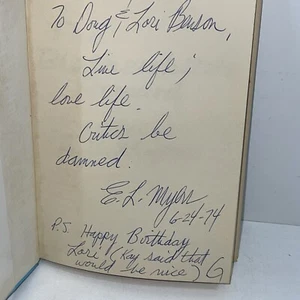 To Doug & Lori Benson,
Live life;
love life.
Critics be
damned.
E. L. Myers
6-24-74
P.S. Happy Birthday
Lori (Kay said that
would be nice)